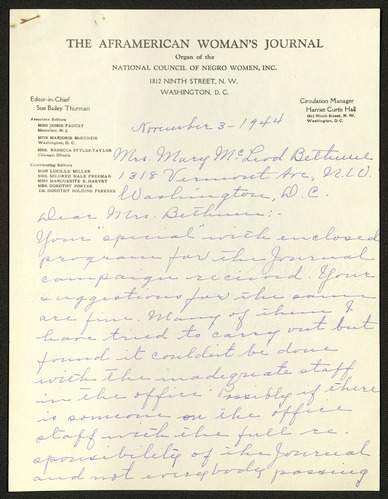 THE AFRAMERICAN WOMAN'S JOURNAL
Organ of the
NATIONAL COUNCIL OF NEGRO WOMEN, INC.
1812 NINTH STREET, N. W.
WASHINGTON, D. C.
Editor-in-Chief
Sue Bailey Thurman
Associate Editors
MISS JESSIE FAUCET
Montclair, N. J.
MISS MARJORIE McKENZIE
Washington, D. C.
MRS. REBECCA STYLES-TAYLOR
Chicago, Illinois
Contributing Editors
MISS LUCILLE MILLER
MRS. MILDRED HALE FREEMAN
MISS MARGUERITE E. HARVEY
MRS. DOROTHY PORTER
DR. DOROTHY BOLDING FEREBEE
Circulation Manager
Harriet Curtis Hall
1812 Ninth Street, N. W.
Washington, D. C.
November 3-1944
Mrs. Mary McLeod Bethune
1318 Vermont Ave, N.W.
Washington, D.C.
Dear Mrs. Bethune:-
Your "special" with enclosed
program for the Journal
campaign received. Your
suggestions for the same
are fine. Many of them I
have tried to carry out but
found it couldn't be done
with the inadequate staff
in the office. Possibly if there
is someone on the office
staff with the full re-
sponsibility of the Journal
and not everybody passing